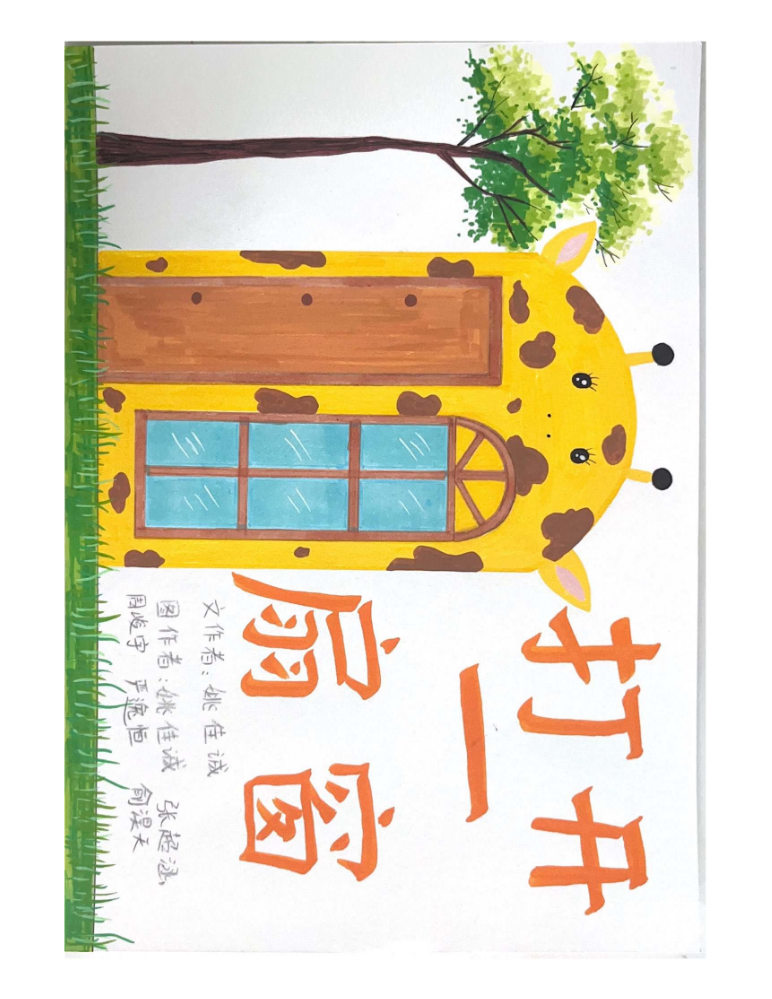 打开
一
扇窗
文作者：姚佳诚
图作者：姚佳诚 张超涵
周峻宇 严逸恒 俞漠天